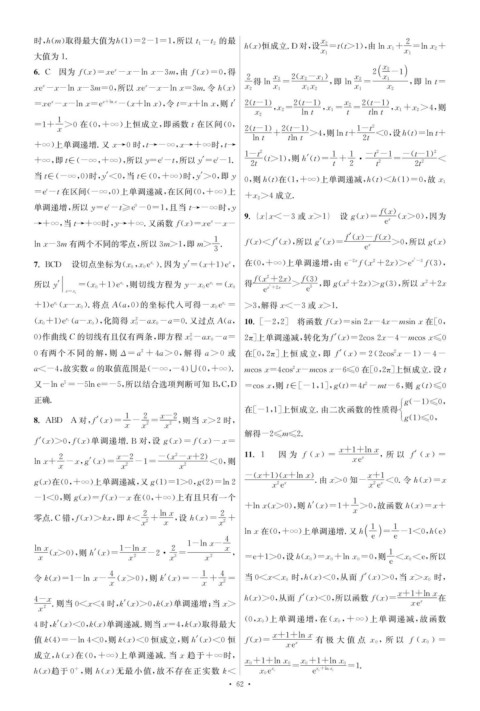 时,h(m)取得最大值为h(1)=2-1=1,所以 t₁-t₂ 的最
大值为1.
6. C 因为 f(x)=xeˣ-x-ln x-3m,由 f(x)=0,得
xeˣ-x-ln x-3m=0,所以 xeˣ-x-ln x=3m.令 h(x)
=xeˣ-x-ln x=e^(x+ln x)-(x+ln x),令 t=x+ln x,则 t′
=1+1/x>0 在(0,+∞)上恒成立,即函数 t 在区间(0,
+∞)上单调递增.又 x→0 时,t→-∞,x→+∞时,t→
+∞,即 t∈(-∞,+∞),所以 y=eᵗ-t,所以 y′=eᵗ-1.
当 t∈(-∞,0)时,y′<0,当 t∈(0,+∞)时,y′>0,即 y
=eᵗ-t 在区间(-∞,0)上单调递减,在区间(0,+∞)上
单调递增,所以 y=eᵗ-t≥e⁰-0=1,且当 t→-∞时,y
→+∞,当 t→+∞时,y→+∞.又函数 f(x)=xeˣ-x-
ln x-3m 有两个不同的零点,所以 3m>1,即 m>1/3.
7. BCD 设切点坐标为(x₀,x₀e^(x₀)).因为 y′=(x+1)eˣ,
所以 y′|x=x₀=(x₀+1)e^(x₀),则切线方程为 y-x₀e^(x₀)=(x₀
+1)e^(x₀)(x-x₀).将点 A(a,0)的坐标代入可得-x₀e^(x₀)=
(x₀+1)e^(x₀)(a-x₀),化简得 x₀²-ax₀-a=0.又过点 A(a,
0)作曲线 C 的切线有且仅有两条,即方程 x₀²-ax₀-a=
0 有两个不同的解,则 Δ=a²+4a>0,解得 a>0 或
a<-4,故实数 a 的取值范围是(-∞,-4)∪(0,+∞).
又-ln e⁵=-5ln e=-5,所以结合选项判断可知 B,C,D
正确.
8. ABD A 对,f′(x)=1/x-2/x²=(x-2)/x²,则当 x>2 时,
f′(x)>0,f(x)单调递增.B 对,设 g(x)=f(x)-x=
ln x+2/x-x,g′(x)=(x-2)/x²-1=-(x²-x+2)/x²<0,则
g(x)在(0,+∞)上单调递减,又 g(1)=1>0,g(2)=ln 2
-1<0,则 g(x)=f(x)-x 在(0,+∞)上有且只有一个
零点.C 错,f(x)>kx,即 k<2/x²+ln x/x,设 h(x)=2/x²+
ln x/x(x>0),则 h′(x)=(1-ln x)/x²-2·2/x³=(1-ln x-4/x)/x²,
令 k(x)=1-ln x-4/x(x>0),则 k′(x)=-1/x+4/x²=
(4-x)/x².则当 0<x<4 时,k′(x)>0,k(x)单调递增;当 x>
4 时,k′(x)<0,k(x)单调递减.则当 x=4,k(x)取得最大
值 k(4)=-ln 4<0,则 k(x)<0 恒成立,则 h′(x)<0 恒
成立,h(x)在(0,+∞)上单调递减.当 x 趋于+∞时,
h(x)趋于 0⁺,则 h(x)无最小值,故不存在正实数 k<
h(x)恒成立.D 对,设 x₂/x₁=t(t>1),由 ln x₁+2/x₁=ln x₂+
2/x₂ 得 ln x₂/x₁=2(x₂-x₁)/(x₁x₂),即 ln x₂/x₁=2(x₂/x₁-1)/x₂,即 ln t=
2(t-1)/x₂,x₂=2(t-1)/ln t,x₁=x₂/t=2(t-1)/(tln t),x₁+x₂>4,则
2(t-1)/ln t+2(t-1)/(tln t)>4,则 ln t+(1-t²)/2t<0,设 h(t)=ln t+
(1-t²)/2t(t>1),则 h′(t)=1/t+1/2·(-t²-1)/t²=-(t-1)²/2t²<
0,则 h(t)在(1,+∞)上单调递减,h(t)<h(1)=0,故 x₁
+x₂>4 成立.
9. {x|x<-3 或 x>1} 设 g(x)=f(x)/eˣ(x>0),因为
f(x)<f′(x),所以 g′(x)=(f′(x)-f(x))/eˣ>0,所以 g(x)
在(0,+∞)上单调递增,由 e^(-2x)f(x²+2x)>e^(x²-3)f(3),
得 f(x²+2x)/e^(x²+2x)>f(3)/e³,即 g(x²+2x)>g(3),所以 x²+2x
>3,解得 x<-3 或 x>1.
10. [-2,2] 将函数 f(x)=sin 2x-4x-msin x 在[0,
2π]上单调递减,转化为 f′(x)=2cos 2x-4-mcos x≤0
在[0,2π]上恒成立,即 f′(x)=2(2cos²x-1)-4-
mcos x=4cos²x-mcos x-6≤0 在[0,2π]上恒成立.设 t
=cos x,则 t∈[-1,1],g(t)=4t²-mt-6,则 g(t)≤0
在[-1,1]上恒成立.由二次函数的性质得{g(-1)≤0, g(1)≤0,
解得-2≤m≤2.
11. 1 因为 f(x)=(x+1+ln x)/xeˣ,所以 f′(x)=
-(x+1)(x+ln x)/x²eˣ.由 x>0 知-(x+1)/x²eˣ<0.令 h(x)=x
+ln x(x>0),则 h′(x)=1+1/x>0,故函数 h(x)=x+
ln x 在(0,+∞)上单调递增.又 h(1/e)=1/e-1<0,h(e)
=e+1>0,设 h(x₀)=x₀+ln x₀=0,则1/e<x₀<e,所以
当 0<x<x₀ 时,h(x)<0,从而 f′(x)>0,当 x>x₀ 时,
h(x)>0,从而 f′(x)<0,所以函数 f(x)=(x+1+ln x)/xeˣ在
(0,x₀)上单调递增,在(x₀,+∞)上单调递减,故函数
f(x)=(x+1+ln x)/xeˣ 有极大值点 x₀,所以 f(x₀)=
(x₀+1+ln x₀)/x₀e^(x₀)=(x₀+1+ln x₀)/e^(x₀+ln x₀)=1.
· 62 ·